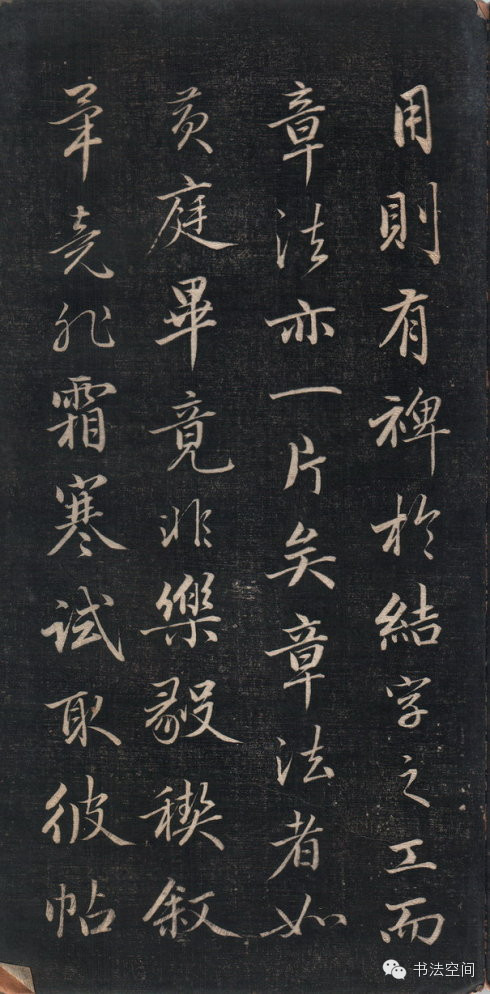 用則有裨於結字之工而
章法亦一片矣章法者如
黄庭畢竟非樂毅禊叙
畢竟非霜寒試取彼帖
书法空间